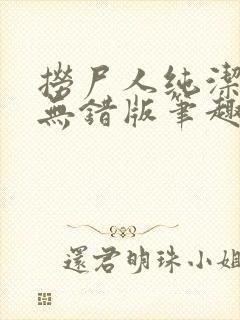 撈尸人純潔
無錯版筆趣
還君明珠小姐